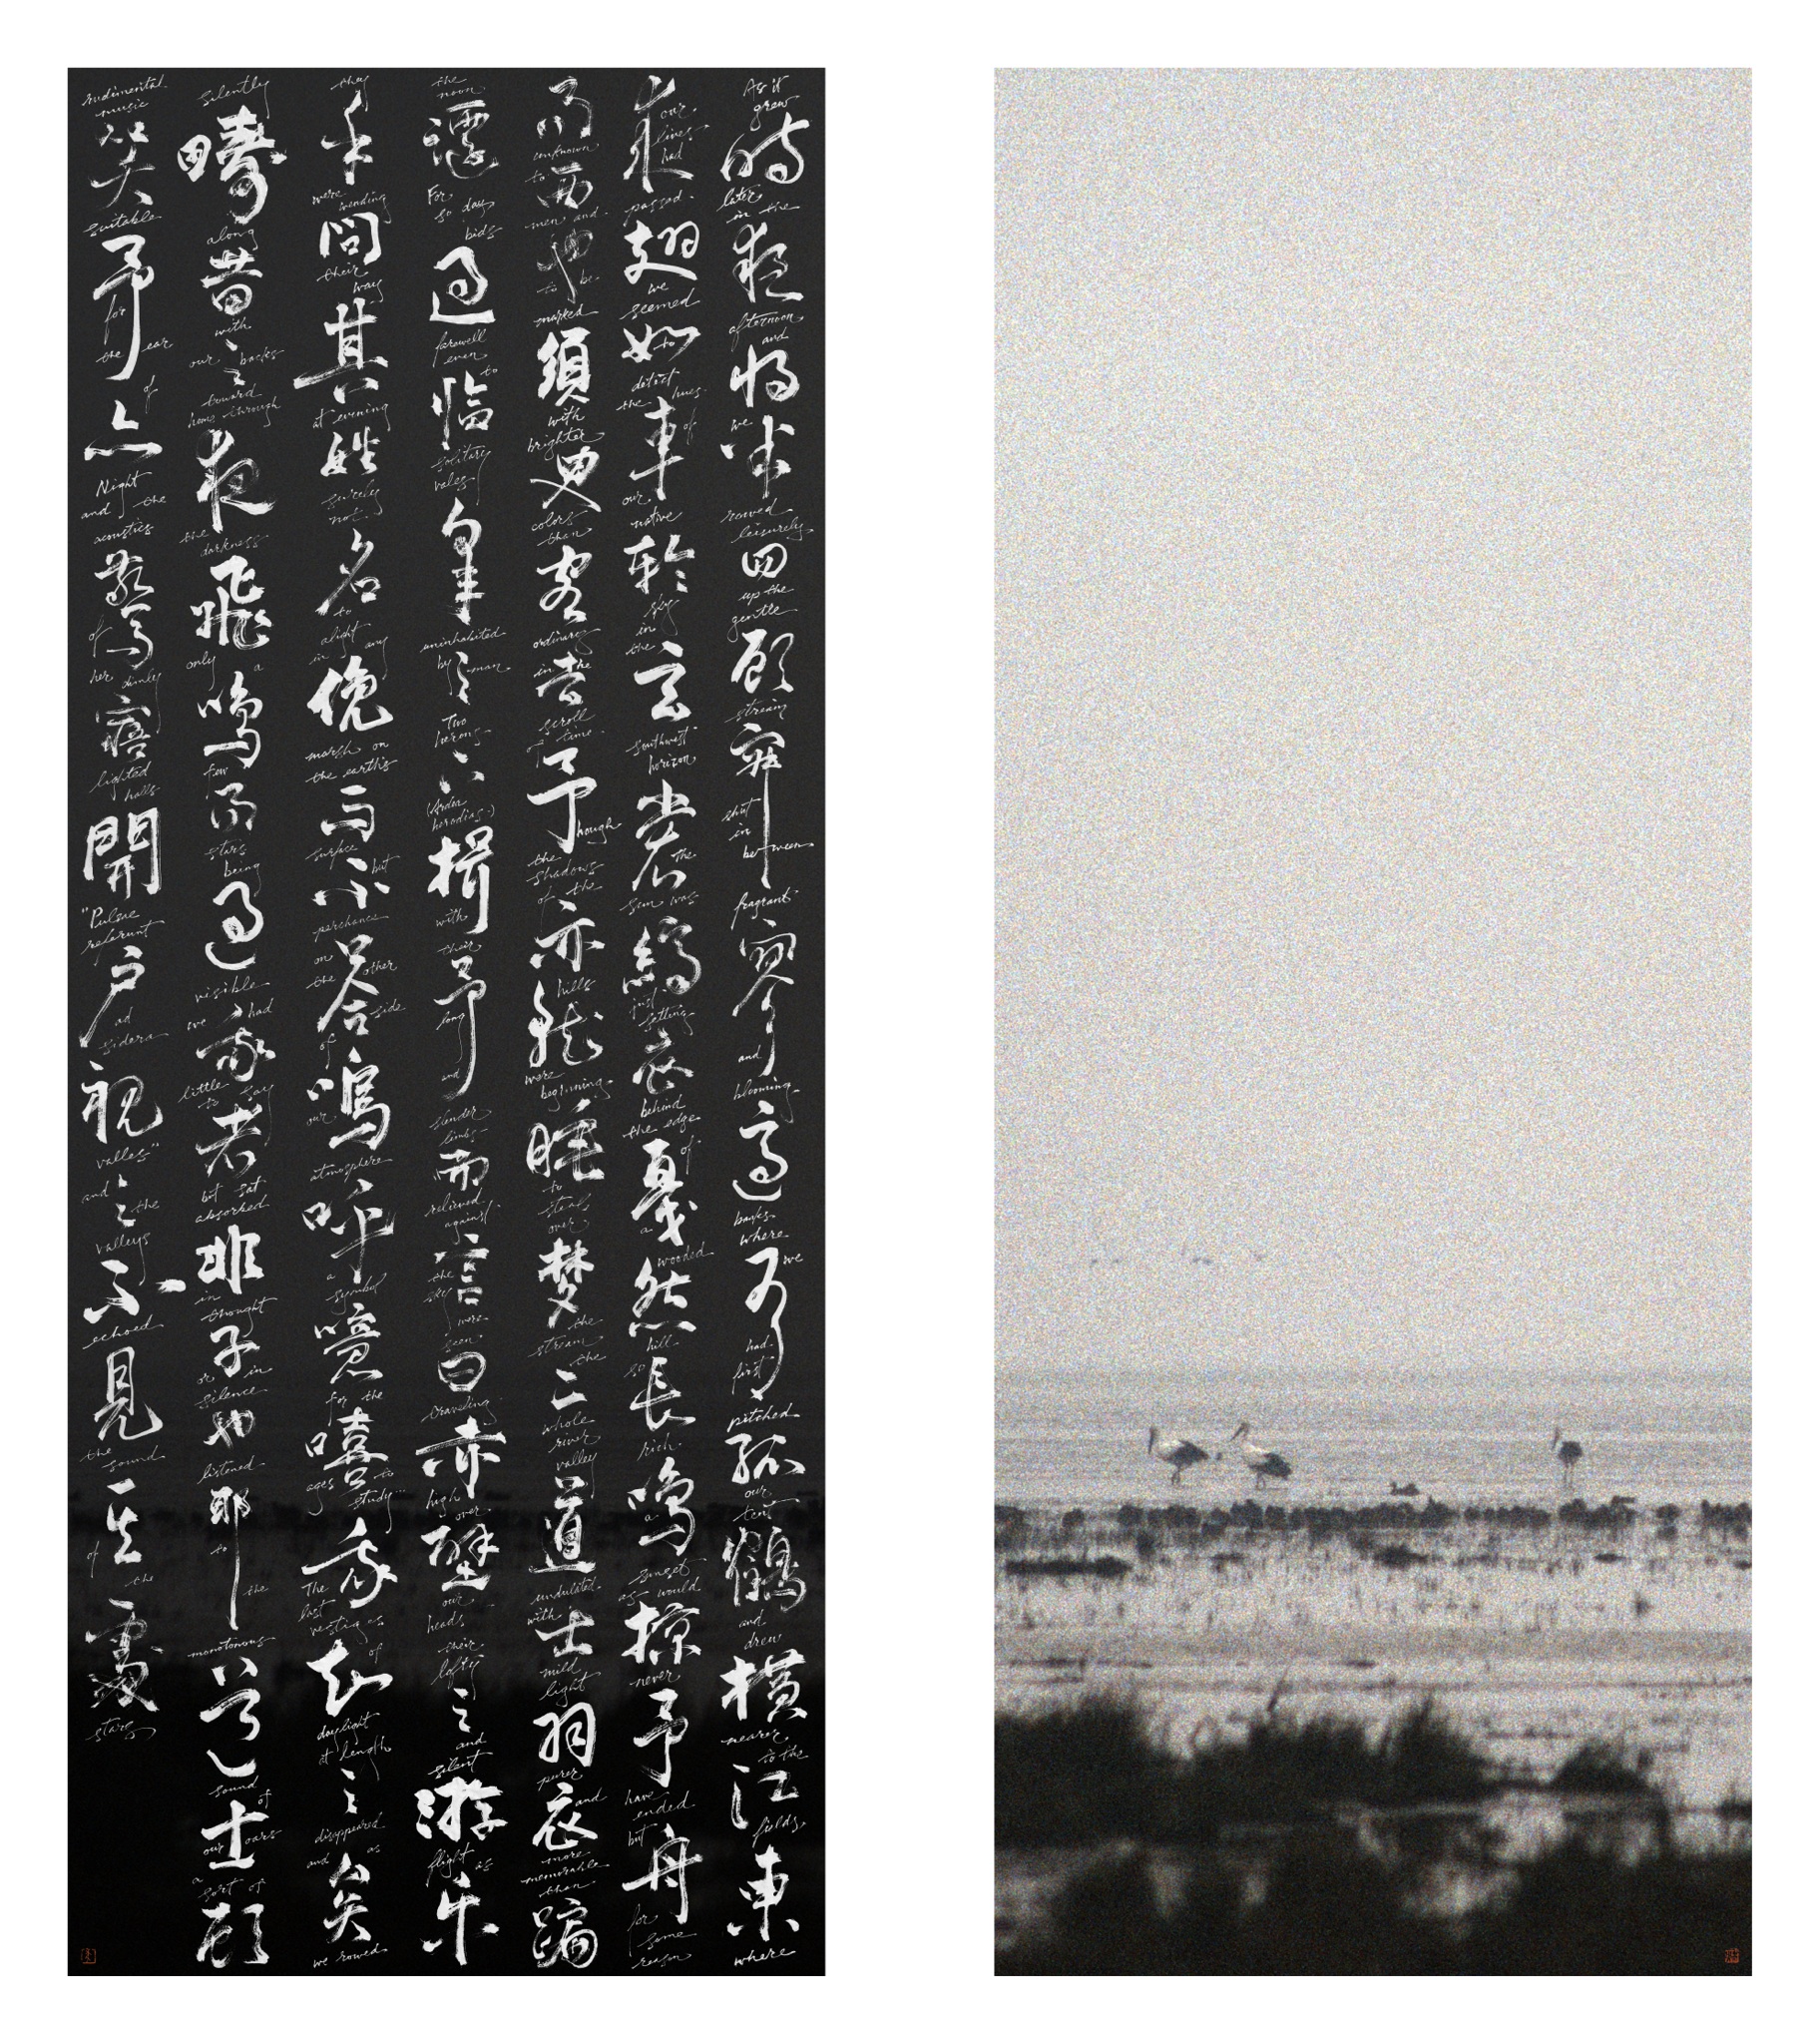 As it grew 時 later in the 夜 afternoon and 將 we 半 rowed leisurely 四 up the gentle 顧 stream 寂 shut in between fragrant 寥 and blooming 適 banks where we 有 had first pitched 孤 our tent 鶴 and drew 橫 nearer to the 江 fields 東 where
來 our lives had passed. 翅 we seemed 如 to detect the hues of 車 our native 輪 sky in the 玄 southwest horizon 裳 the sun was 縞 just setting 衣 behind the edge of 戛 a wooded 然 hill so 長 rich 鳴 a sunset as would 掠 never 予 have ended but 舟 for some reason
而 unknown to 西 men and 也 to be marked 須 with brighter 臾 colors than 客 ordinary in the 去 scroll of time. 予 though the shadows of the 亦 hills 就 were beginning 睡 to steal over 夢 the stream the 二 whole river valley 道 undulated with 士 mild light 羽 purer and 衣 more memorable than 蹁
the noon 躚 For so day bids 過 farewell even to 臨 solitary vales 皋 uninhabited by man 之 Two herons 下 (Ardea herodias) 揖 with their 予 long and slender limbs 而 relieved against 言 the sky were seen 曰 traveling 赤 high over 壁 our heads their lofty 之 and silent 游 flight as 樂
they 乎 were wending 問 their way 其 at evening 姓 surely not 名 to alight in any 俛 marsh on the earth's 而 surface but 不 perchance on the other side 答 of our 嗚 atmosphere 呼 a symbol 噫 for the 嘻 ages to study... 我 The last vestiges of 知 daylight at length 之 disappeared and as 矣 we rowed
silently 疇 along 昔 with our backs 之 toward home through 夜 the darkness 飛 only a 鳴 few 而 stars being 過 visible 我 we had little to say 者 but sat absorbed 非 in thought 子 or in silence 也 listened 耶 to the monotonous 道 sound of 士 our oars a sort of 顧
rudimental music 笑 suitable 予 for the ear of 亦 Night and the acoustics 驚 of her dimly 寤 lighted halls 開 "Pulsae referunt 戶 ad sidera 視 valles" 之 and the valleys 不 echoed 見 the sound 其 of the 處 stars